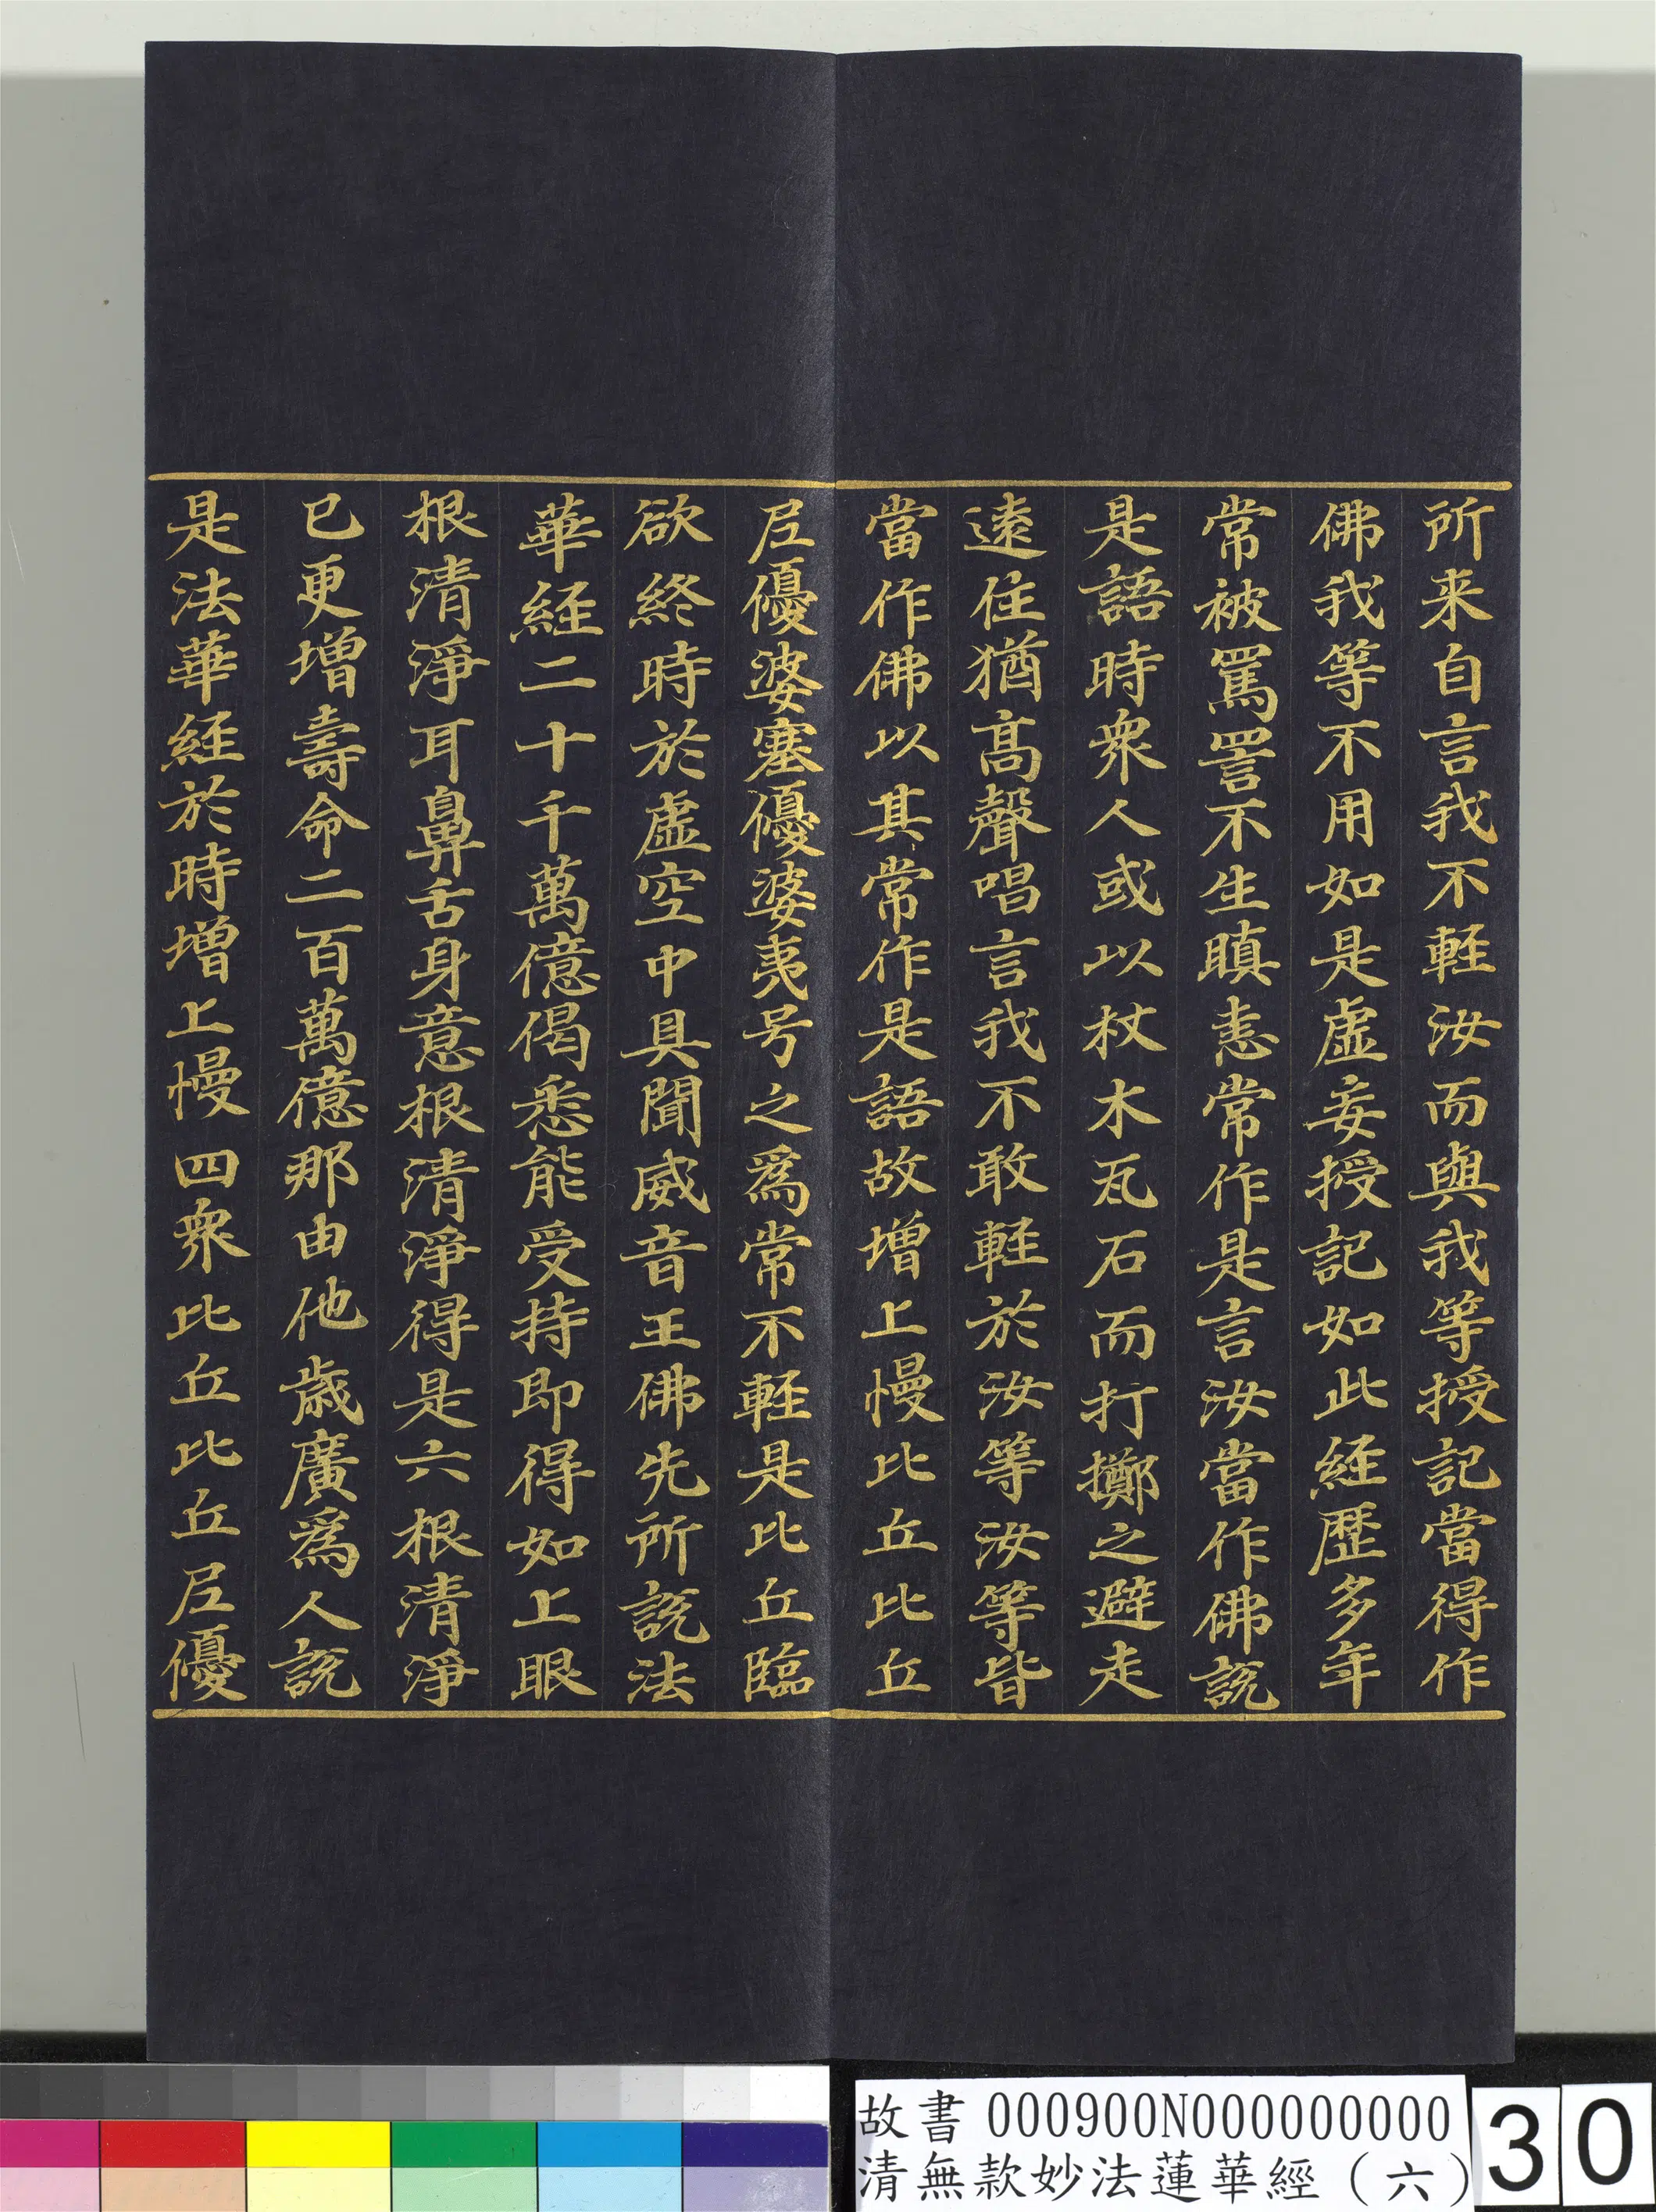 所来自言我不軽汝而與我等授記當得作
佛我等不用如是虛妄授記如此経歷多年
常被罵詈不生瞋恚常作是言汝當作佛說
是語時衆人或以杖木瓦石而打擲之避走
遠住猶髙聲唱言我不敢軽於汝等汝等皆
當作佛以其常作是語故增上慢比丘比丘
尼優婆塞優婆夷号之為常不軽是比丘臨
欲終時於虛空中具聞威音王佛先所說法
華経二十千萬億偈悉能受持即得如上眼
根清淨耳鼻舌身意根清淨得是六根清淨
已更增壽命二百萬億那由他歲廣為人說
是法華経於時增上慢四衆比丘比丘尼優
故書 000900N000000000
清無款妙法蓮華經（六）
30